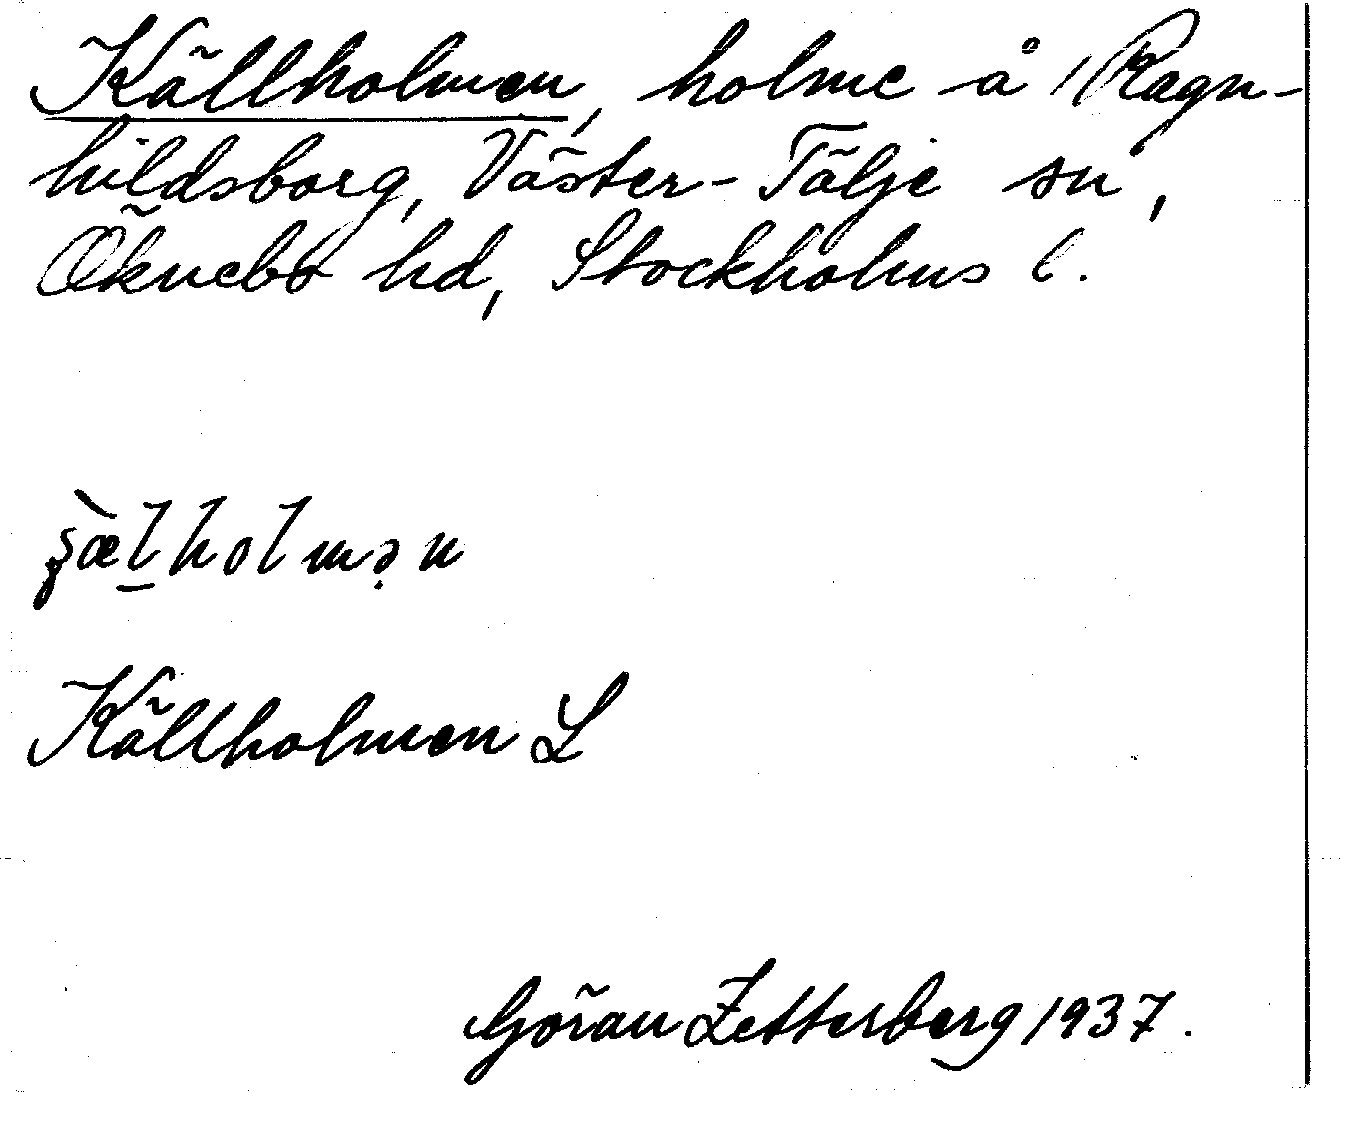 Källholmen, holme å Ragn-
hildsborg, Väster-Tälje sn,
Öknebo hd, Stockholms l.
Källholmen L
Göran Zetterberg 1937.